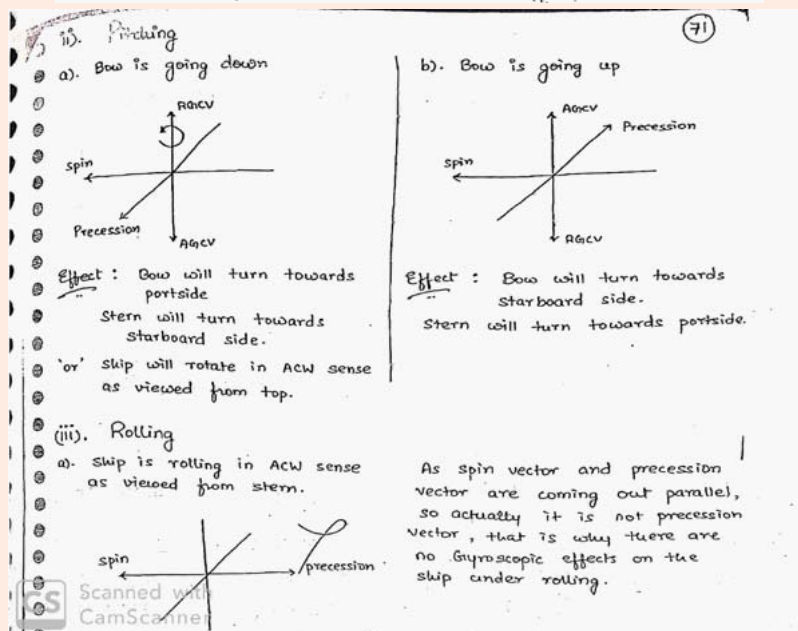 71
ii). Pitching
a). Bow is going down
RGCV
spin
Precession
AGCV
Effect : Bow will turn towards
portside
Stern will turn towards
starboard side.
'or' Ship will rotate in ACW sense
as viewed from top.
b). Bow is going up
AGCV
Precession
spin
RGCV
Effect : Bow will turn towards
starboard side.
Stern will turn towards portside.
(iii). Rolling
a). Ship is rolling in ACW sense
as viewed from stern.
spin
precession
As spin vector and precession
vector are coming out parallel,
so actually it is not precession
vector, that is why there are
no Gyroscopic effects on the
ship under rolling.
CS
Scanned with
CamScanner